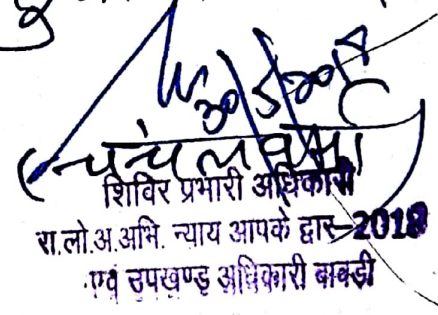 30/5/2018
(चंचल वर्मा)
शिविर प्रभारी अधिकारी
रा.लो.अ.अभि. न्याय आपके द्वार-2018
एवं उपखण्ड अधिकारी बावड़ी